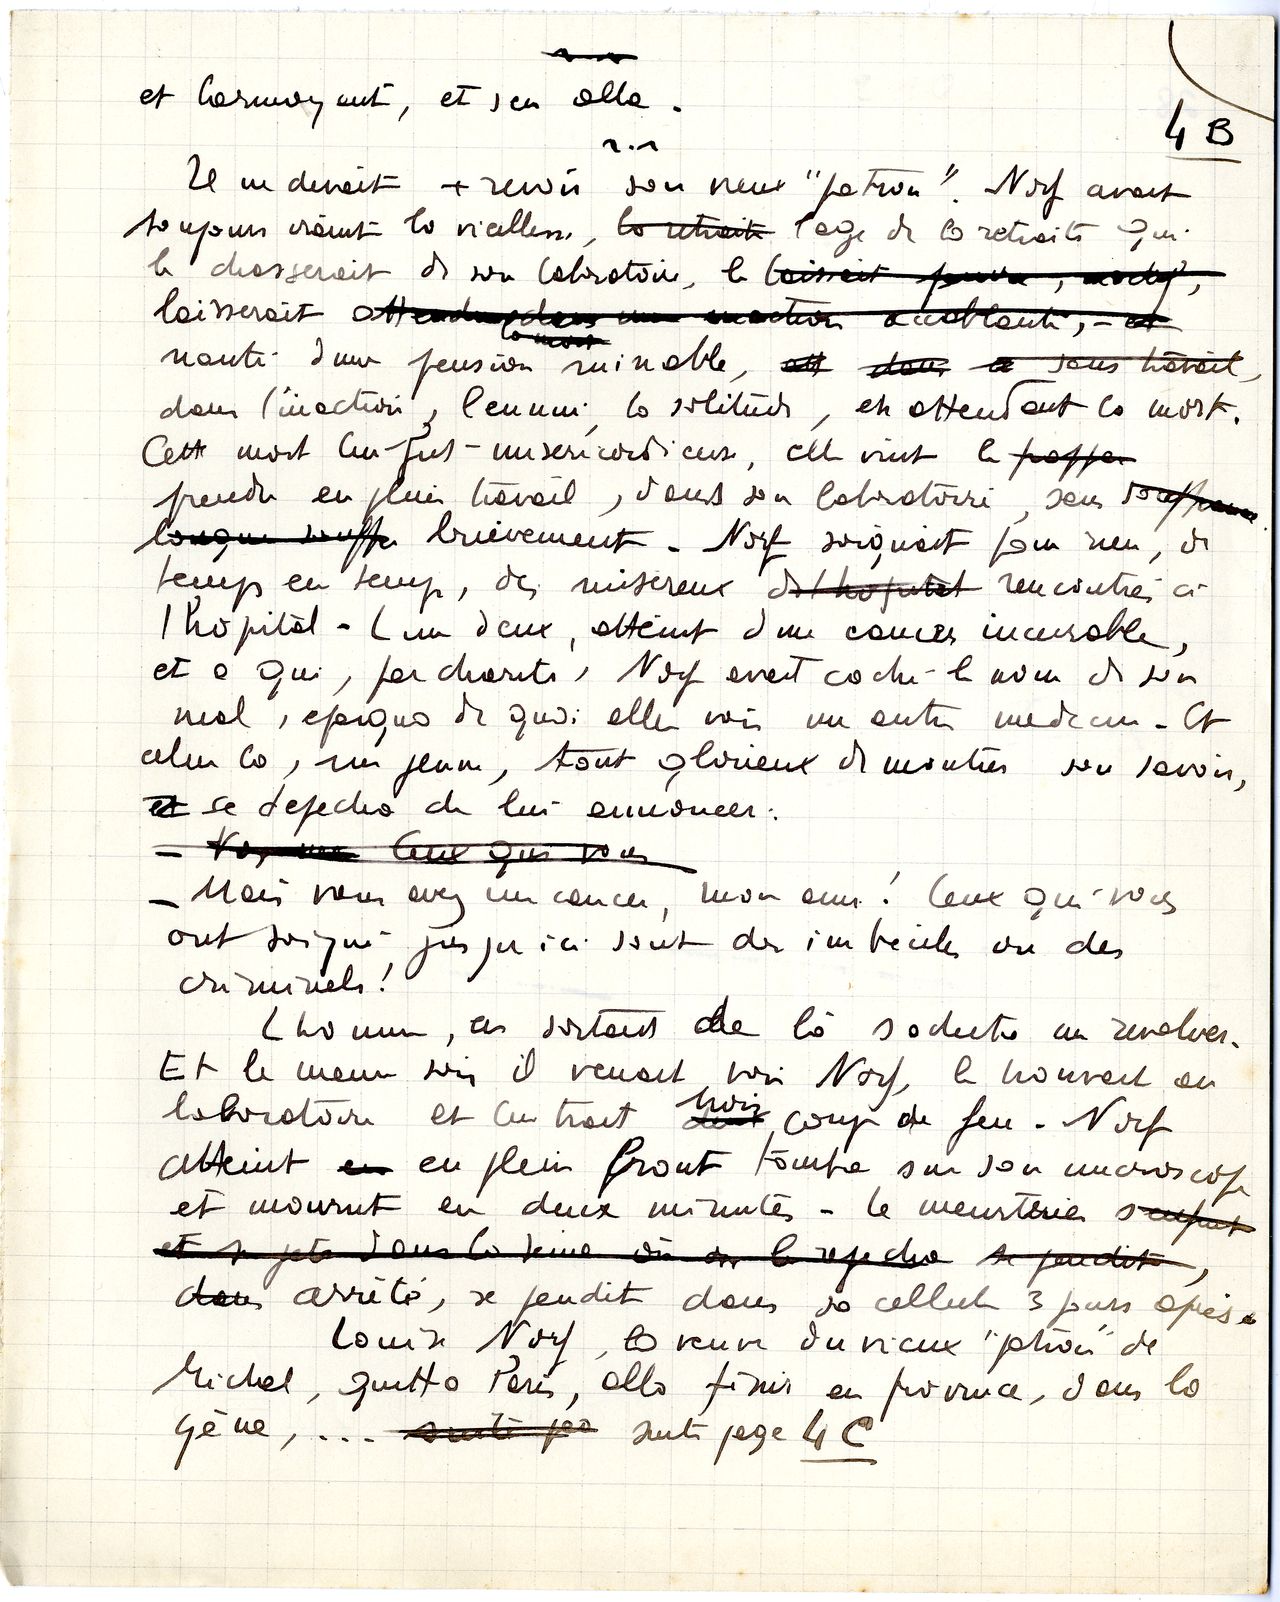 et larmoyant, et s'en alla.
4 B
Il ne devait + revoir son vieux "patron". Norf avait
toujours craint la vieillesse, la retraite l'age de la retraite qui
le chasserait de son laboratoire, le laissait
laisserait attendre dans une inaction accablante, - et
la mort
nanti d'une pension minable, et dans sans travail,
dans l'inaction, l'ennui, la solitude, en attendant la mort.
Cette mort lui fut misericordieuse, elle vint le frapper
prendre en plein travail, dans son laboratoire, sans souffrance
longue souffr brièvement - Norf soignait pour rien, de
temps en temps, des misereux de l'hopital rencontrés à
l'hôpital - L'un d'eux, atteint d'un cancer incurable,
et a qui, par charité, Norf avait caché le nom de son
mal, epargna de quoi aller voir un autre medecin - Et
celui la, un jeune, tout glorieux de montrer son savoir,
et se depecha de lui annoncer:
- Ceux qui vous
- Mais vous avez un cancer, mon ami! Ceux qui vous
ont soigné jusqu'ici sont des imbeciles ou des
criminels!
L'homme, en sortant de là s'acheta un revolver.
Et le meme soir il venait voir Norf, le trouvait au
trois
laboratoire et lui tirait deux coups de feu - Norf
atteint en en plein front tomba sur son microscope
et mourut en deux minutes - Le meurtrier s'enfuit
et se jeta dans la Seine où on le repecha se pendit,
dans arrêté, se pendit dans sa cellule 3 jours après.
Louise Norf, la veuve du vieux "patron" de
Michel, quitta Paris, alla finir en province, dans la
gêne, ... suite pa suite page 4 C